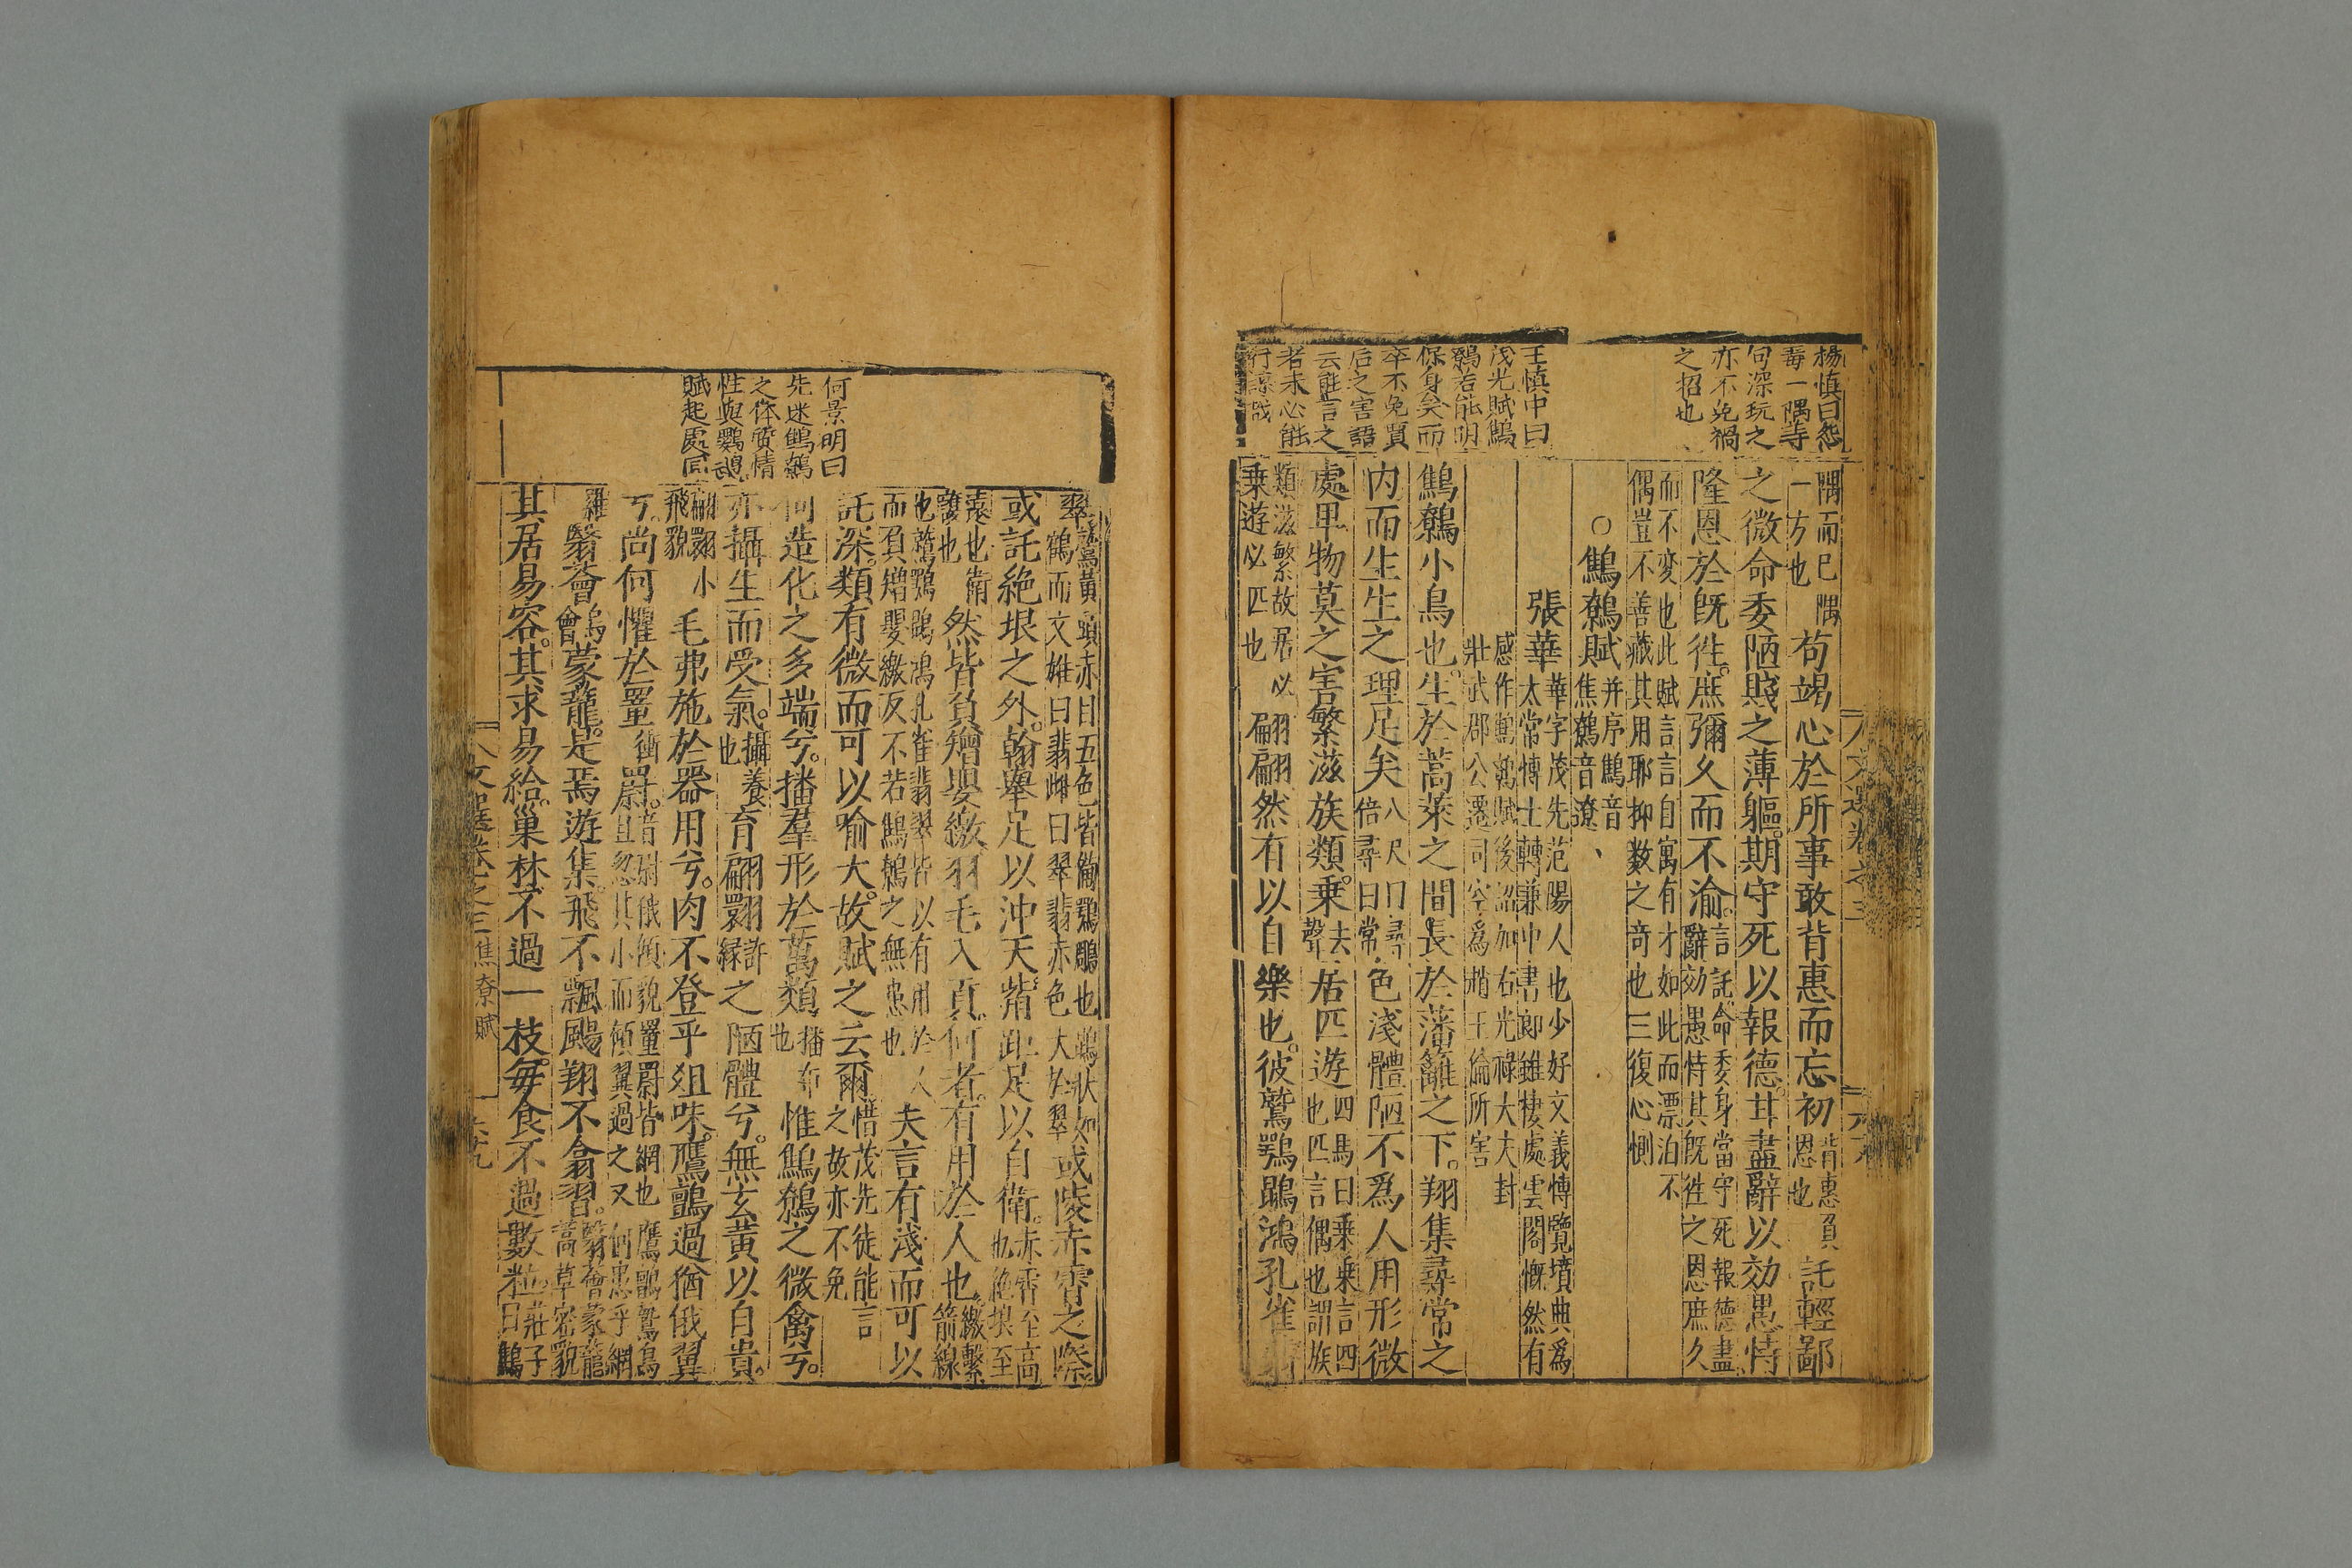 楊慎曰怨
毒一隅等
句深玩之
亦不免禍
之招也
王慎中曰
茂光賦鷦
鷯若能明
保身矣而
卒不免賈
后之害語
云能言之
者未必能
行諒哉
隅而已隅
一方也
苟竭心於所事敢背惠而忘初
背惠負
恩也
託輕鄙
之微命委陋賤之薄軀期守死以報德甘盡辭以効愚恃
隆恩於旣徃庶彌久而不渝
言託命委身當守死報德盡
辭効愚恃其旣徃之恩庶久
而不变也此賦言言自寓有才如此而漂泊不
偶豈不善藏其用耶抑数之奇也三復心惻
○鷦鷯賦
并序鷦音
焦鷯音遼
張華
華字茂先范陽人也少好文義博覽墳典爲
太常博士轉兼中書郎雖棲處雲閣慨然有
感作鷦鷯賦後詔加右光祿大夫封
壯武郡公遷司空爲趙王倫所害
鷦鷯小鳥也生於蒿萊之間長於藩籬之下翔集尋常之
内而生生之理足矣
八尺曰尋
倍尋曰常
色淺體陋不爲人用形微
處卑物莫之害繁滋族類乗
去
聲
居匹遊
四馬曰乗乗言四
也匹言偶也謂族
類滋繁故居必
乗遊必匹也
翩翩然有以自樂也彼鷲鶚鵾鴻孔雀翡
翠
鷲黃頭赤目五色皆備鶚鵰也鵾狀如
鶴而文雄曰翡雌曰翠翡赤色大於翠
或陵赤霄之際
或託絶垠之外翰舉足以沖天觜距足以自衛
赤霄至高
也絶垠至
遠也衛
護也
然皆負矰嬰繳羽毛入貢何者有用於人也
繳繫
箭線
也鷲鶚鵾鴻孔雀翡翠皆以有用於人
而負矰嬰繳反不若鷦鷯之無患也
夫言有淺而可以
託深類有微而可以喻大故賦之云爾
惜茂先徒能言
之故亦不免
何造化之多端兮播羣形於萬類
播布
也
惟鷦鷯之微禽兮
亦攝生而受氣
攝養
也
育翩翾
許
緣
之陋體兮無玄黃以自貴
翩翾小
飛貌
毛弗施於器用兮肉不登乎俎味鷹鸇過猶俄翼
兮尚何懼於罿
衝
罻
音尉俄傾貌罿罻皆網也鷹鸇鷙鳥
且忽其小而傾翼過之又何患乎網
羅
翳薈
烏
會
蒙蘢是焉遊集飛不飄颺翔不翕習
翳薈蒙蘢
蒿草密貌
其居易容其求易給巢林不過一枝每食不過數粒
莊子
曰鷦
何景明曰
先述鷦鷯
之体質情
性與鸚鵡
賦起處同
文選卷之三 焦寮賦